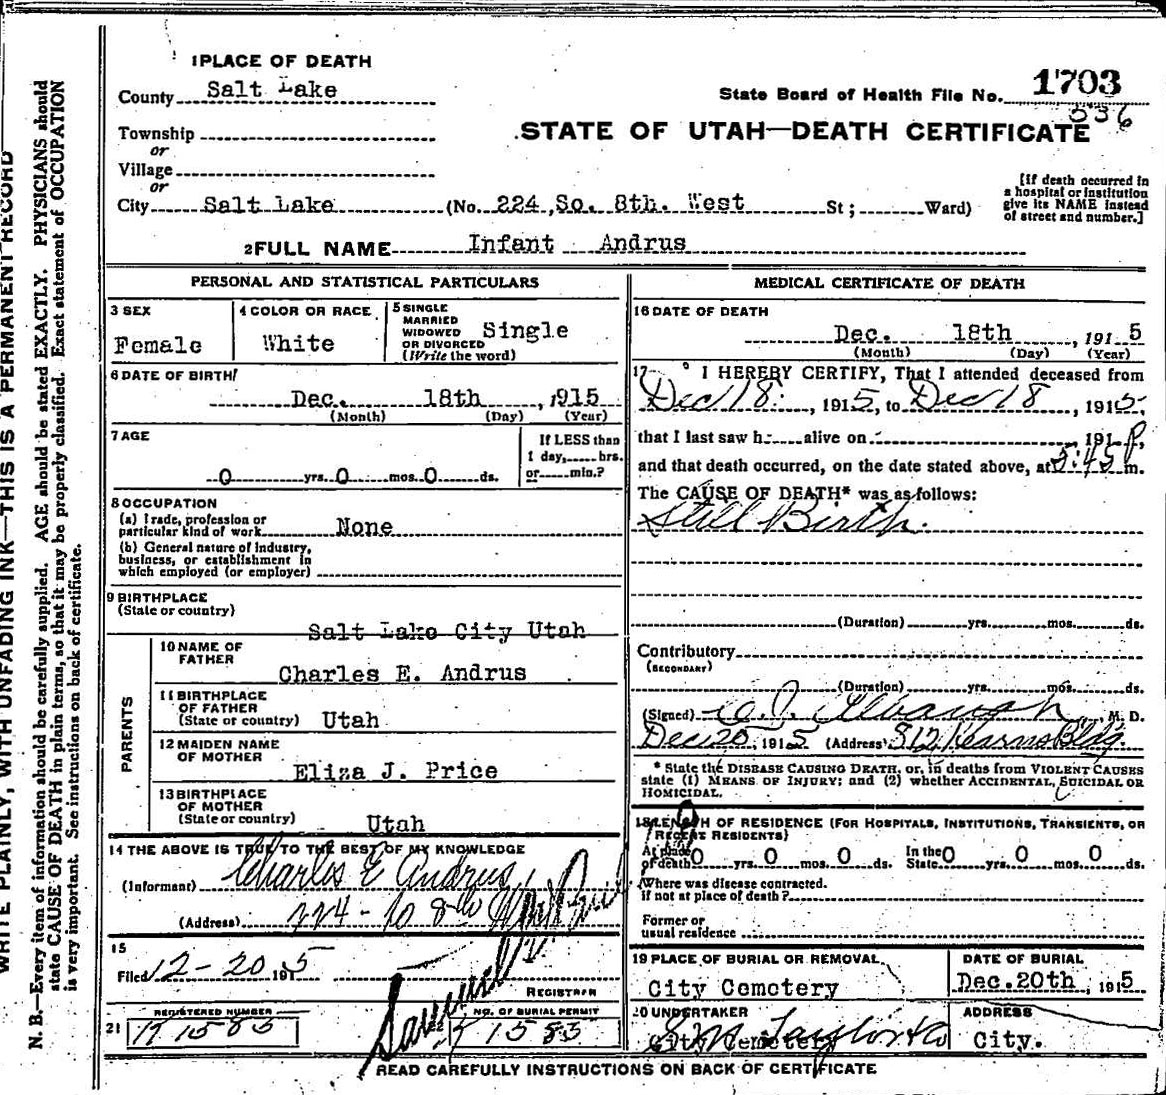 WRITE PLAINLY, WITH UNFADING INK—THIS IS A PERMANENT RECORD
N. B.—Every item of information should be carefully supplied. AGE should be stated EXACTLY. PHYSICIANS should
state CAUSE OF DEATH in plain terms, so that it may be properly classified. Exact statement of OCCUPATION
is very important. See instructions on back of certificate.
1 PLACE OF DEATH
County Salt Lake
State Board of Health File No. 1703
336
Township
or
STATE OF UTAH—DEATH CERTIFICATE
Village
or
City Salt Lake (No. 224 So. 8th. West St; Ward)
[If death occurred in
a hospital or institution
give its NAME instead
of street and number.]
2 FULL NAME Infant Andrus
PERSONAL AND STATISTICAL PARTICULARS
3 SEX
Female
4 COLOR OR RACE
White
5 SINGLE
MARRIED
WIDOWED
OR DIVORCED
(Write the word)
Single
6 DATE OF BIRTH
Dec. 18th, 1915
(Month) (Day) (Year)
7 AGE
0 yrs. 0 mos. 0 ds.
If LESS than
1 day, hrs.
or min.?
8 OCCUPATION
(a) Trade, profession or
particular kind of work None
(b) General nature of industry,
business, or establishment in
which employed (or employer)
9 BIRTHPLACE
(State or country)
Salt Lake City Utah
PARENTS
10 NAME OF
FATHER
Charles E. Andrus
11 BIRTHPLACE
OF FATHER
(State or country) Utah
12 MAIDEN NAME
OF MOTHER
Eliza J. Price
13 BIRTHPLACE
OF MOTHER
(State or country)
Utah
14 THE ABOVE IS TRUE TO THE BEST OF MY KNOWLEDGE
(Informant) Charles E Andrus
(Address) 224-So 8th W
15
Filed 12-20 1915
REGISTRAR
21
REGISTERED NUMBER
R 1583
22
NO. OF BURIAL PERMIT
R 1583
MEDICAL CERTIFICATE OF DEATH
16 DATE OF DEATH
Dec. 18th, 1915
(Month) (Day) (Year)
17 I HEREBY CERTIFY, That I attended deceased from
Dec 18, 1915, to Dec 18, 1915,
that I last saw h alive on , 191 ,
and that death occurred, on the date stated above, at 5:45 P m.
The CAUSE OF DEATH* was as follows:
Still Birth.
(Duration) yrs. mos. ds.
Contributory
(SECONDARY)
(Duration) yrs. mos. ds.
(Signed) , M. D.
Dec 20, 1915 (Address) 812 Kearns Bldg.
* State the DISEASE CAUSING DEATH, or, in deaths from VIOLENT CAUSES
state (1) MEANS OF INJURY; and (2) whether ACCIDENTAL, SUICIDAL OR
HOMICIDAL.
18 LENGTH OF RESIDENCE (FOR HOSPITALS, INSTITUTIONS, TRANSIENTS, OR
RECENT RESIDENTS)
At place
of death 0 yrs. 0 mos. 0 ds.
In the
State 0 yrs. 0 mos. 0 ds.
Where was disease contracted.
if not at place of death?
Former or
usual residence
19 PLACE OF BURIAL OR REMOVAL
City Cemetery
DATE OF BURIAL
Dec. 20th, 1915
20 UNDERTAKER
City Cemetery
S.M. Taylor & Co
ADDRESS
City.
READ CAREFULLY INSTRUCTIONS ON BACK OF CERTIFICATE